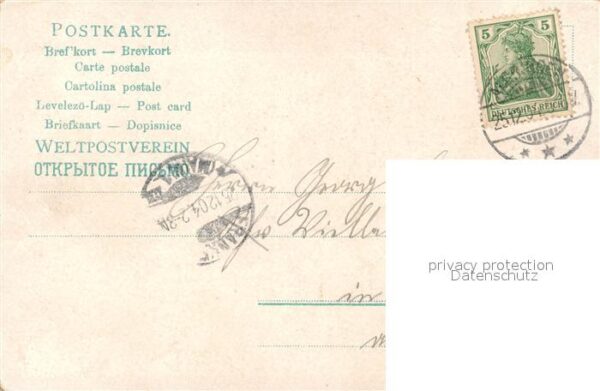 POSTKARTE.
Bref'kort — Brevkort
Carte postale
Cartolina postale
Levelezö-Lap — Post card
Briefkaart — Dopisnice
WELTPOSTVEREIN
ОТКРЫТОЕ ПИСЬМО
5 5
DEUTSCHES REICH
12.04.2-3N
Herrn Georg
in
privacy protection
Datenschutz